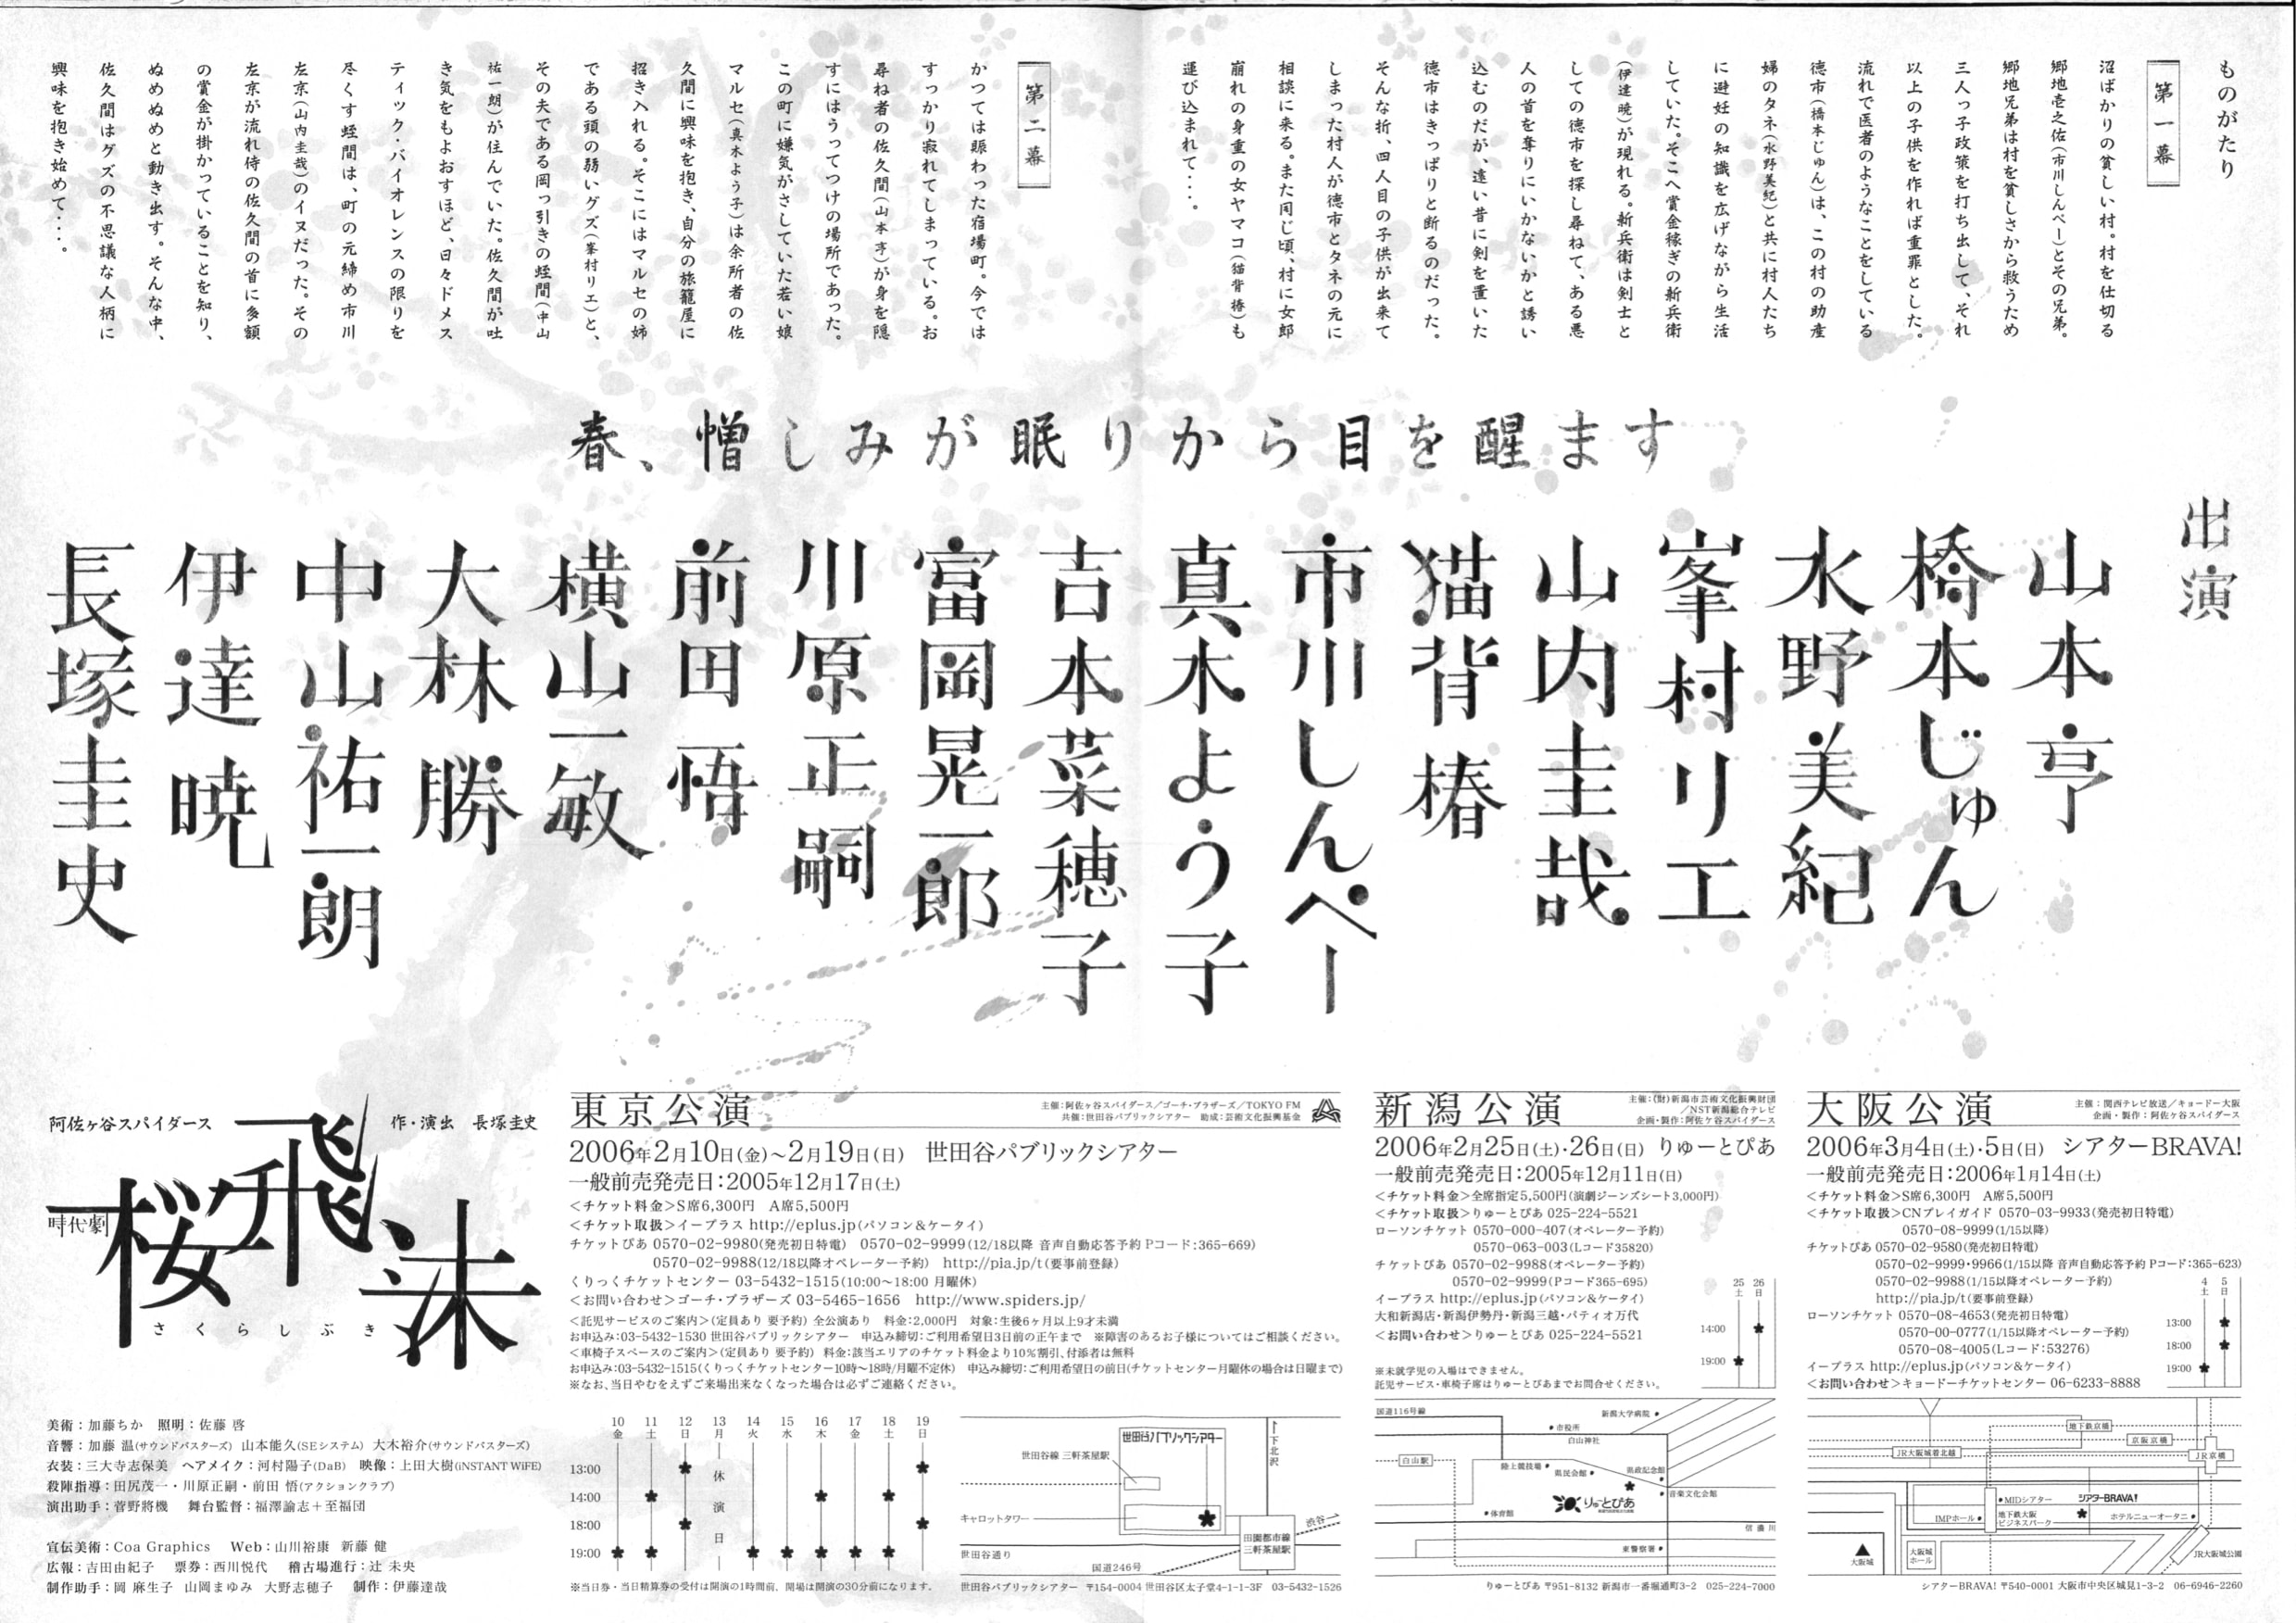 ものがたり
第一幕
沼ばかりの貧しい村。村を仕切る
郷地壱之佑(市川しんぺー)とその兄弟。
郷地兄弟は村を貧しさから救うため
三人っ子政策を打ち出して、それ
以上の子供を作れば重罪とした。
流れで医者のようなことをしている
徳市(橋本じゅん)は、この村の助産
婦のタネ(水野美紀)と共に村人たち
に避妊の知識を広げながら生活
していた。そこへ賞金稼ぎの新兵衛
(伊達暁)が現れる。新兵衛は剣士と
しての徳市を探し尋ねて、ある悪
人の首を奪りにいかないかと誘い
込むのだが、遠い昔に剣を置いた
徳市はきっぱりと断るのだった。
そんな折、四人目の子供が出来て
しまった村人が徳市とタネの元に
相談に来る。また同じ頃、村に女郎
崩れの身重の女ヤマコ(猫背椿)も
運び込まれて・・・。
第二幕
かつては賑わった宿場町。今では
すっかり寂れてしまっている。お
尋ね者の佐久間(山本亨)が身を隠
すにはうってつけの場所であった。
この町に嫌気がさしていた若い娘
マルセ(真木よう子)は余所者の佐
久間に興味を抱き、自分の旅籠屋に
招き入れる。そこにはマルセの姉
である頭の弱いグズ(峯村リエ)と、
その夫である岡っ引きの蛭間(中山
祐一朗)が住んでいた。佐久間が吐
き気をもよおすほど、日々ドメス
ティック・バイオレンスの限りを
尽くす蛭間は、町の元締め市川
左京(山内圭哉)のイヌだった。その
左京が流れ侍の佐久間の首に多額
の賞金が掛かっていることを知り、
ぬめぬめと動き出す。そんな中、
佐久間はグズの不思議な人柄に
興味を抱き始めて・・・。
春、憎しみが眠りから目を醒ます
出演
山本亨
橋本じゅん
水野美紀
峯村リエ
山内圭哉
猫背椿
市川しんぺー
真木よう子
吉本菜穂子
富岡晃一郎
川原正嗣
前田悟
横山一敏
大林勝
中山祐一朗
伊達暁
長塚圭史
阿佐ヶ谷スパイダース
作・演出 長塚圭史
時代劇
桜飛沫
さくらしぶき
美術:加藤ちか 照明:佐藤 啓
音響:加藤 温(サウンドバスターズ) 山本能久(SEシステム) 大木裕介(サウンドバスターズ)
衣装:三大寺志保美 ヘアメイク:河村陽子(DaB) 映像:上田大樹(iNSTANT WiFE)
殺陣指導:田尻茂一・川原正嗣・前田 悟(アクションクラブ)
演出助手:菅野將機 舞台監督:福澤諭志+至福団
宣伝美術:Coa Graphics Web:山川裕康 新藤 健
広報:吉田由紀子 票券:西川悦代 稽古場進行:辻 未央
制作助手:岡 麻生子 山岡まゆみ 大野志穂子 制作:伊藤達哉
東京公演
主催:阿佐ヶ谷スパイダース/ゴーチ・ブラザーズ/TOKYO FM
共催:世田谷パブリックシアター 助成:芸術文化振興基金
2006年2月10日(金)~2月19日(日) 世田谷パブリックシアター
一般前売発売日:2005年12月17日(土)
<チケット料金>S席6,300円 A席5,500円
<チケット取扱>イープラス http://eplus.jp(パソコン&ケータイ)
チケットぴあ 0570-02-9980(発売初日特電) 0570-02-9999(12/18以降 音声自動応答予約 Pコード:365-669)
0570-02-9988(12/18以降オペレーター予約) http://pia.jp/t(要事前登録)
くりっくチケットセンター 03-5432-1515(10:00~18:00 月曜休)
<お問い合わせ>ゴーチ・ブラザーズ 03-5465-1656 http://www.spiders.jp/
<託児サービスのご案内>(定員あり 要予約) 全公演あり 料金:2,000円 対象:生後6ヶ月以上9才未満
お申込み:03-5432-1530 世田谷パブリックシアター 申込み締切:ご利用希望日3日前の正午まで ※障害のあるお子様についてはご相談ください。
<車椅子スペースのご案内>(定員あり 要予約) 料金:該当エリアのチケット料金より10%割引、付添者は無料
お申込み:03-5432-1515(くりっくチケットセンター10時~18時/月曜不定休) 申込み締切:ご利用希望日の前日(チケットセンター月曜休の場合は日曜まで)
※なお、当日やむをえずご来場出来なくなった場合は必ずご連絡ください。
10 11 12 13 14 15 16 17 18 19
金 土 日 月 火 水 木 金 土 日
13:00
14:00
18:00
19:00
休演日
※当日券・当日精算券の受付は開演の1時間前、開場は開演の30分前になります。
世田谷パブリックシアター
世田谷線 三軒茶屋駅
キャロットタワー
世田谷通り
国道246号
田園都市線
三軒茶屋駅
下北沢
渋谷
世田谷パブリックシアター 〒154-0004 世田谷区太子堂4-1-1-3F 03-5432-1526
新潟公演
主催:(財)新潟市芸術文化振興財団
/NST新潟総合テレビ
企画・製作:阿佐ケ谷スパイダース
2006年2月25日(土)・26日(日) りゅーとぴあ
一般前売発売日:2005年12月11日(日)
<チケット料金>全席指定5,500円(演劇ジーンズシート3,000円)
<チケット取扱>りゅーとぴあ 025-224-5521
ローソンチケット 0570-000-407(オペレーター予約)
0570-063-003(Lコード35820)
チケットぴあ 0570-02-9988(オペレーター予約)
0570-02-9999(Pコード365-695)
イープラス http://eplus.jp(パソコン&ケータイ)
大和新潟店・新潟伊勢丹・新潟三越・パティオ万代
<お問い合わせ>りゅーとぴあ 025-224-5521
※未就学児の入場はできません。
託児サービス・車椅子席はりゅーとぴあまでお問合せください。
25 26
土 日
14:00
19:00
国道116号線
新潟大学病院
市役所
白山神社
白山駅
陸上競技場
県民会館
県政記念館
音楽文化会館
りゅーとぴあ
体育館
信濃川
東警察署
りゅーとぴあ 〒951-8132 新潟市一番堀通町3-2 025-224-7000
大阪公演
主催:関西テレビ放送/キョードー大阪
企画・製作:阿佐ケ谷スパイダース
2006年3月4日(土)・5日(日) シアターBRAVA!
一般前売発売日:2006年1月14日(土)
<チケット料金>S席6,300円 A席5,500円
<チケット取扱>CNプレイガイド 0570-03-9933(発売初日特電)
0570-08-9999(1/15以降)
チケットぴあ 0570-02-9580(発売初日特電)
0570-02-9999・9966(1/15以降 音声自動応答予約 Pコード:365-623)
0570-02-9988(1/15以降オペレーター予約)
http://pia.jp/t(要事前登録)
ローソンチケット 0570-08-4653(発売初日特電)
0570-00-0777(1/15以降オペレーター予約)
0570-08-4005(Lコード:53276)
イープラス http://eplus.jp(パソコン&ケータイ)
<お問い合わせ>キョードーチケットセンター 06-6233-8888
4 5
土 日
13:00
18:00
19:00
地下鉄京橋
京阪京橋
JR大阪城北詰
JR京橋
MIDシアター
シアターBRAVA!
IMPホール
地下鉄大阪
ビジネスパーク
ホテルニューオータニ
大阪城
大阪城
ホール
JR大阪城公園
シアターBRAVA! 〒540-0001 大阪市中央区城見1-3-2 06-6946-2260